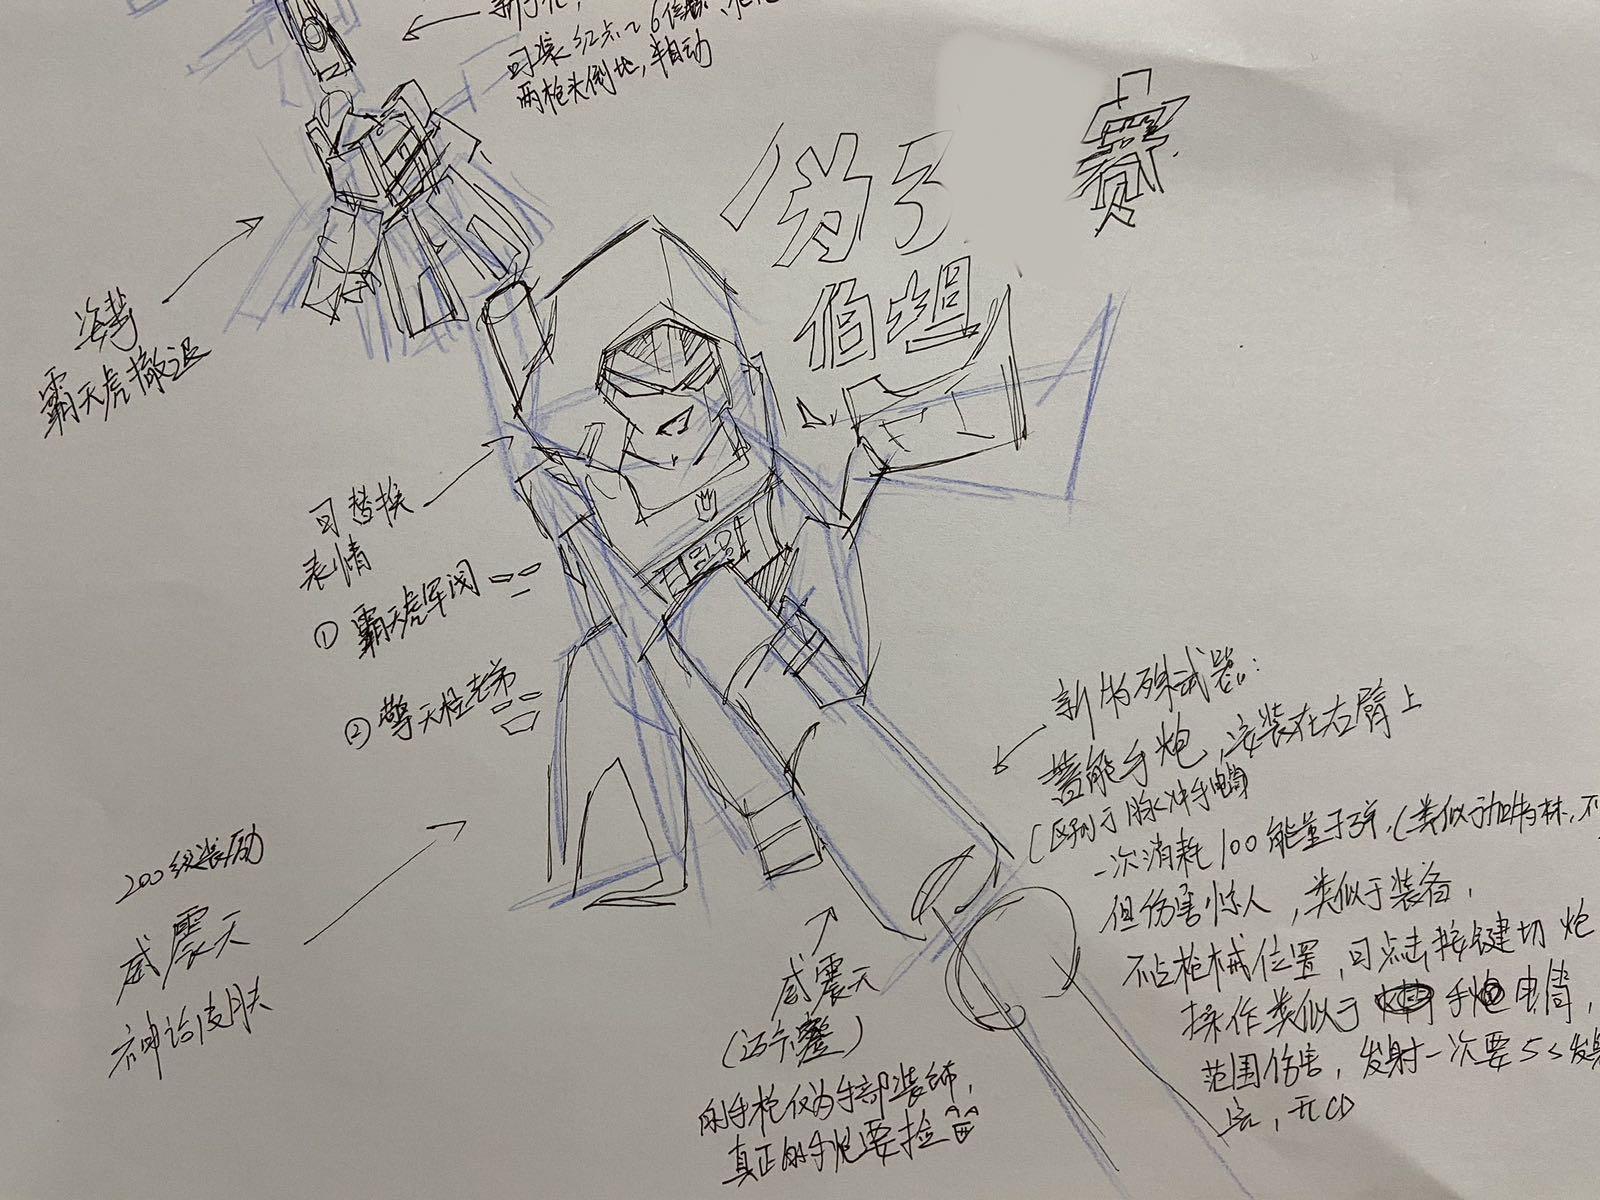 可装红点~6倍
两枪头倒地，半自动
为了
赛
伯坦
姿势
霸天虎撤退
可替换
表情
① 霸天虎军阀
② 擎天柱老弟
200级奖励
威震天
神话皮肤
威震天
的手枪仅为手部装饰，
真正的手炮要捡
新的殊武器：
蓄能手炮，安装在右臂上
（区别于脉冲手电筒
一次消耗100能量子弹，（类似于加特林，不
但伤害惊人，类似于装备，
不占枪械位置，可点击按键切炮
操作类似于 手电筒，
范围伤害，发射一次要5s发射
完，无CD